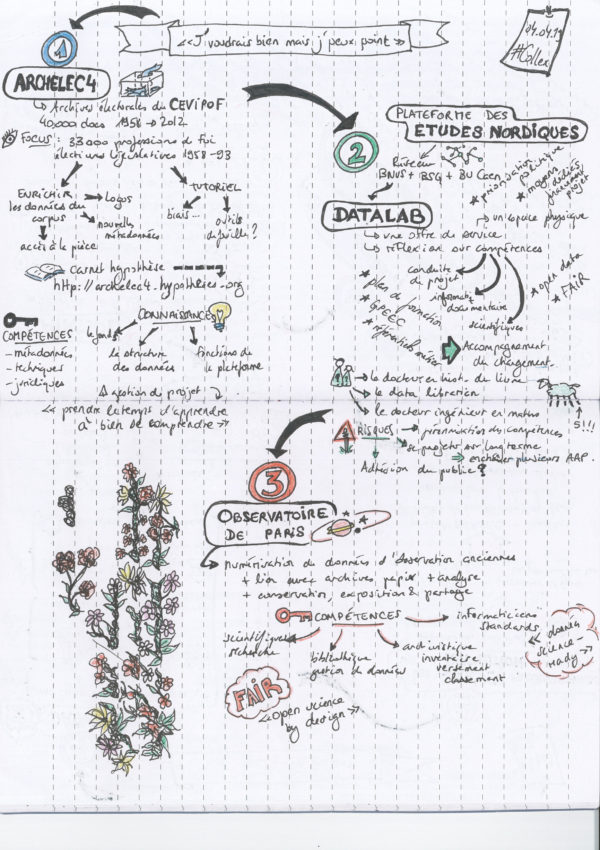 << J'voudrais bien mais j'peux point >>
04.04.19
#Collex
1
ARCHELEC4
Archives électorales du CEVIPOF
40.000 docs 1958 → 2012
FOCUS : 33000 professions de foi
élections législatives 1958-93
ENRICHIR
les données du
corpus
accès à la pièce
nouvelles
métadonnées
TUTORIEL
biais...
outils
de fouille ?
carnet hypothèse
http://archelec4.hypotheses.org
COMPÉTENCES
- métadonnées
- techniques
- juridiques
CONNAISSANCES
le fonds
la structure
des données
fonctions de
la plateforme
gestion du projet
<< prendre le temps d'apprendre
à bien se comprendre >>
2
PLATEFORME DES
ETUDES NORDIQUES
Réseau
BNUS + BSG + BU Caen
* priorisation
politique
* moyens
dédiés
uniquement
projet
DATALAB
un espace physique
une offre de service
réflexion sur compétences
conduite
de projet
informatique
documentaire
scientifiques
* plan de formation
* GPEEC
* référentiels métier
* open data
* FAIR
Accompagnement
du changement.
le docteur en hist. du livre
le data librarian
le docteur ingénieur en maths
5!!!
RISQUES
pérennisation des compétences
se projeter sur long terme
⇒ enchaîner plusieurs AAP.
Adhésion du public ?
3
OBSERVATOIRE
DE PARIS
numérisation de données d'observation anciennes
+ lien avec archives papier + analyse
+ conservation, exposition & partage
COMPÉTENCES
scientifiques
recherche
bibliothèque
gestion de données
archivistique
inventaire
versement
classement
informaticiens
standards
<< données
science-
ready >>
FAIR
<< open science
by design >>